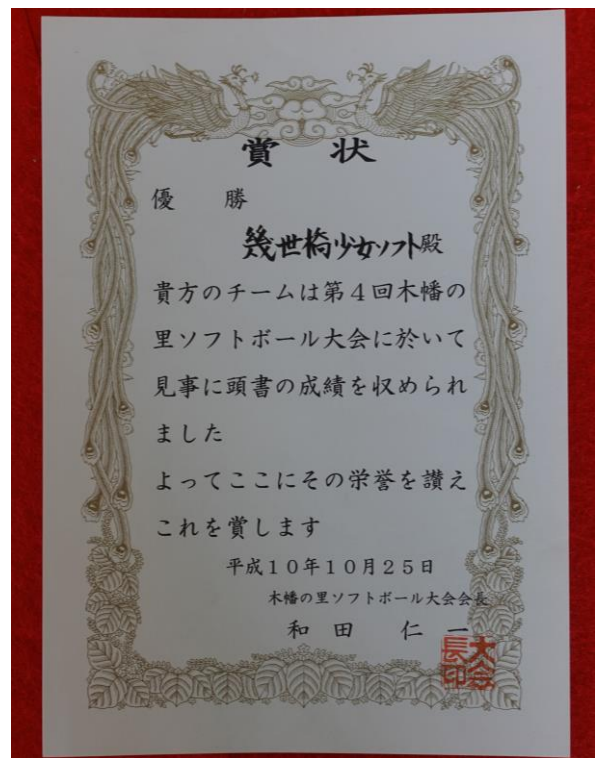 賞状
優勝
幾世橋少女ソフト殿
貴方のチームは第4回木幡の
里ソフトボール大会に於いて
見事に頭書の成績を収められ
ました
よってここにその栄誉を讃え
これを賞します
平成10年10月25日
木幡の里ソフトボール大会会長
和田仁一
大会長印